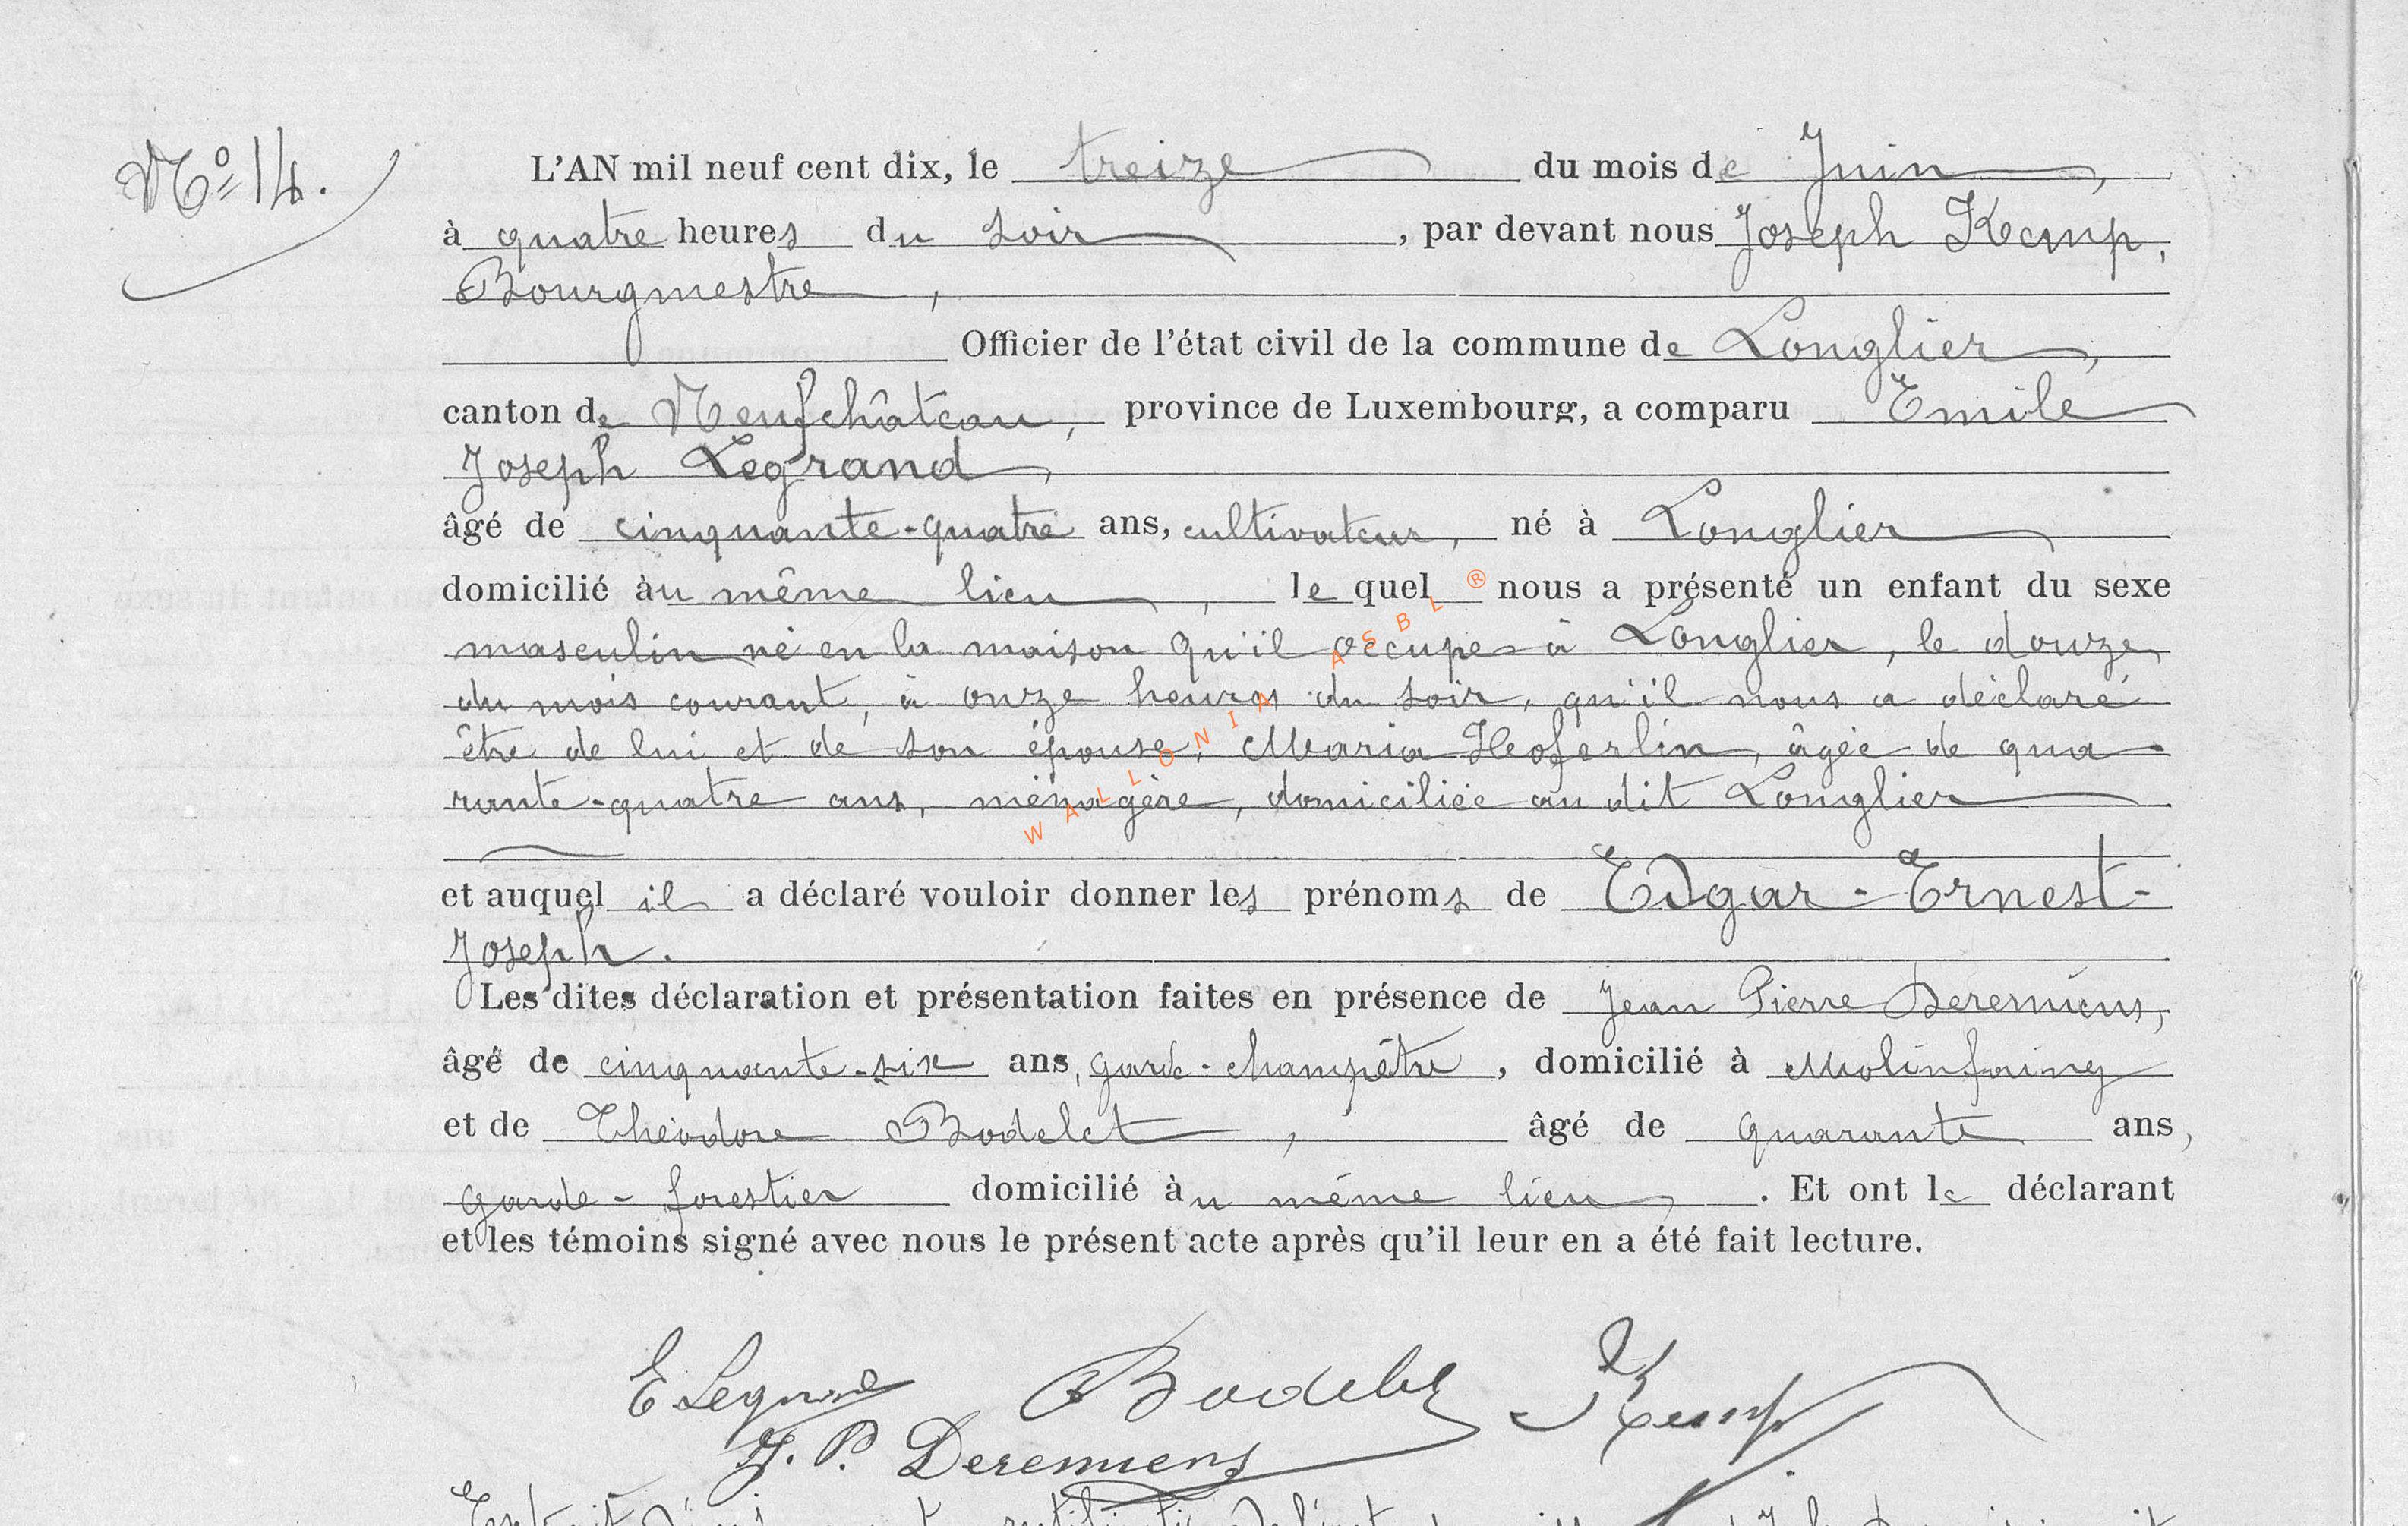 No 14.
L'AN mil neuf cent dix, le treize du mois de Juin,
à quatre heures du soir, par devant nous Joseph Kemp,
Bourgmestre,
Officier de l'état civil de la commune de Longlier,
canton de Neufchâteau, province de Luxembourg, a comparu Emile
Joseph Legrand,
âgé de cinquante-quatre ans, cultivateur, né à Longlier
domicilié au même lieu, le quel nous a présenté un enfant du sexe
masculin né en la maison qu'il occupe à Longlier, le douze
du mois courant, à onze heures du soir, qu'il nous a déclaré
être de lui et de son épouse, Maria Heoferlin, âgée de qua-
rante-quatre ans, ménagère, domiciliée au dit Longlier
et auquel il a déclaré vouloir donner les prénoms de Edgar-Ernest-
Joseph.
Les dites déclaration et présentation faites en présence de Jean Pierre Deremiens,
âgé de cinquante-six ans, garde-champêtre, domicilié à Molinfaing
et de Théodore Bodelet, âgé de quarante ans,
garde-forestier domicilié au même lieu. Et ont le déclarant
et les témoins signé avec nous le présent acte après qu'il leur en a été fait lecture.
E Legrand Bodelet J Kemp
J. P. Deremiens
WALLONIA ASBL ®